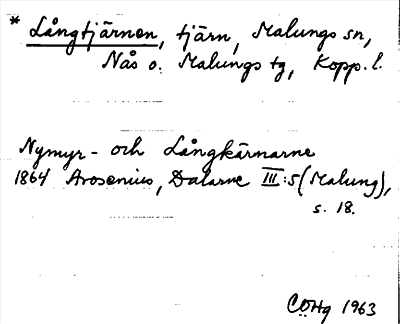 * Långtjärnen, tjärn, Malungs sn,
Nås o. Malungs tg, Kopp. l.
Nymyr- och Långkärnarne
1864 Arosenius, Dalarne III:5 (Malung),
s. 18.
COHg 1963